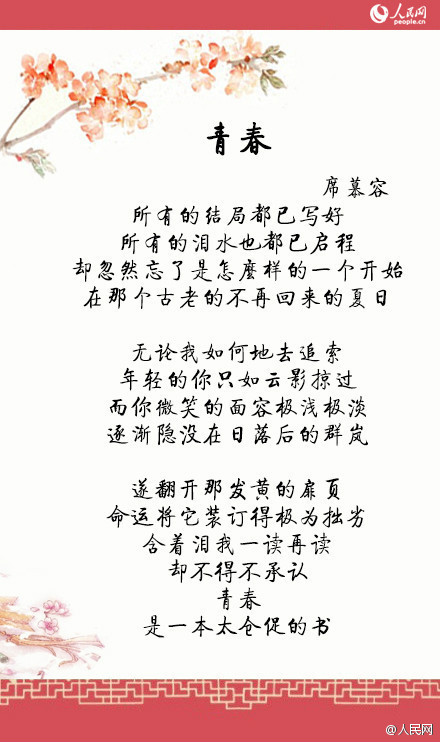 人民网
people.cn
青春
席慕容
所有的结局都已写好
所有的泪水也都已启程
却忽然忘了是怎麼样的一个开始
在那个古老的不再回来的夏日
无论我如何地去追索
年轻的你只如云影掠过
而你微笑的面容极浅极淡
逐渐隐没在日落后的群岚
遂翻开那发黄的扉页
命运将它装订得极为拙劣
含着泪我一读再读
却不得不承认
青春
是一本太仓促的书
@人民网